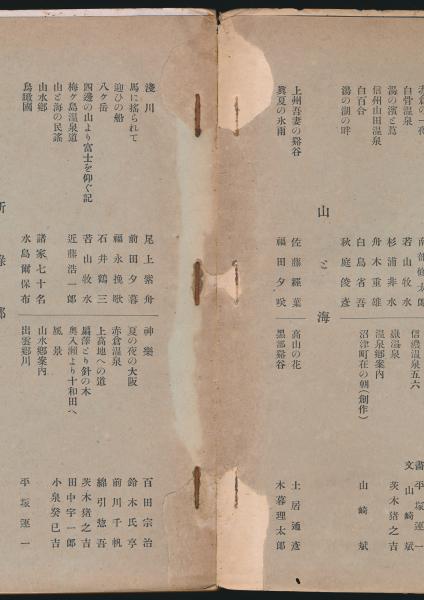 赤倉の一夜 南部修太郎
白骨温泉 若山牧水
湯の濱と蔦 杉浦非水
信州山田温泉 舟木重雄
白百合 白鳥省吾
湯の湖の畔 秋庭俊彦
山と海
上州吾妻の谿谷 佐藤緑葉
眞夏の氷雨 福田夕咲
信濃温泉五六 畵平塚運一
文山崎斌
嶽温泉 茨木猪之吉
温泉鄕案内
沼津町在の朝(創作) 山崎斌
高山の花 土居通彦
黑部谿谷 木暮理太郎
淺川 尾上紫舟
馬に搖られて 前田夕暮
迎ひの船 福永挽歌
八ケ岳 石井鶴三
四邊の山より富士を仰ぐ記 若山牧水
梅ヶ島温泉道 近藤浩一郎
山と海の民謠
山水鄕 諸家七十名
鳥瞰圖 水島爾保布
神樂 百田宗治
夏の夜の大阪 鈴木氏亨
赤倉温泉 前川千帆
上高地への道 綿引惣吾
扇澤とり針の木 茨木猪之吉
奥入瀬より十和田へ 田中宇一郎
風景 小泉癸巳吉
山水鄕案内
出雲鄕川 平塚運一